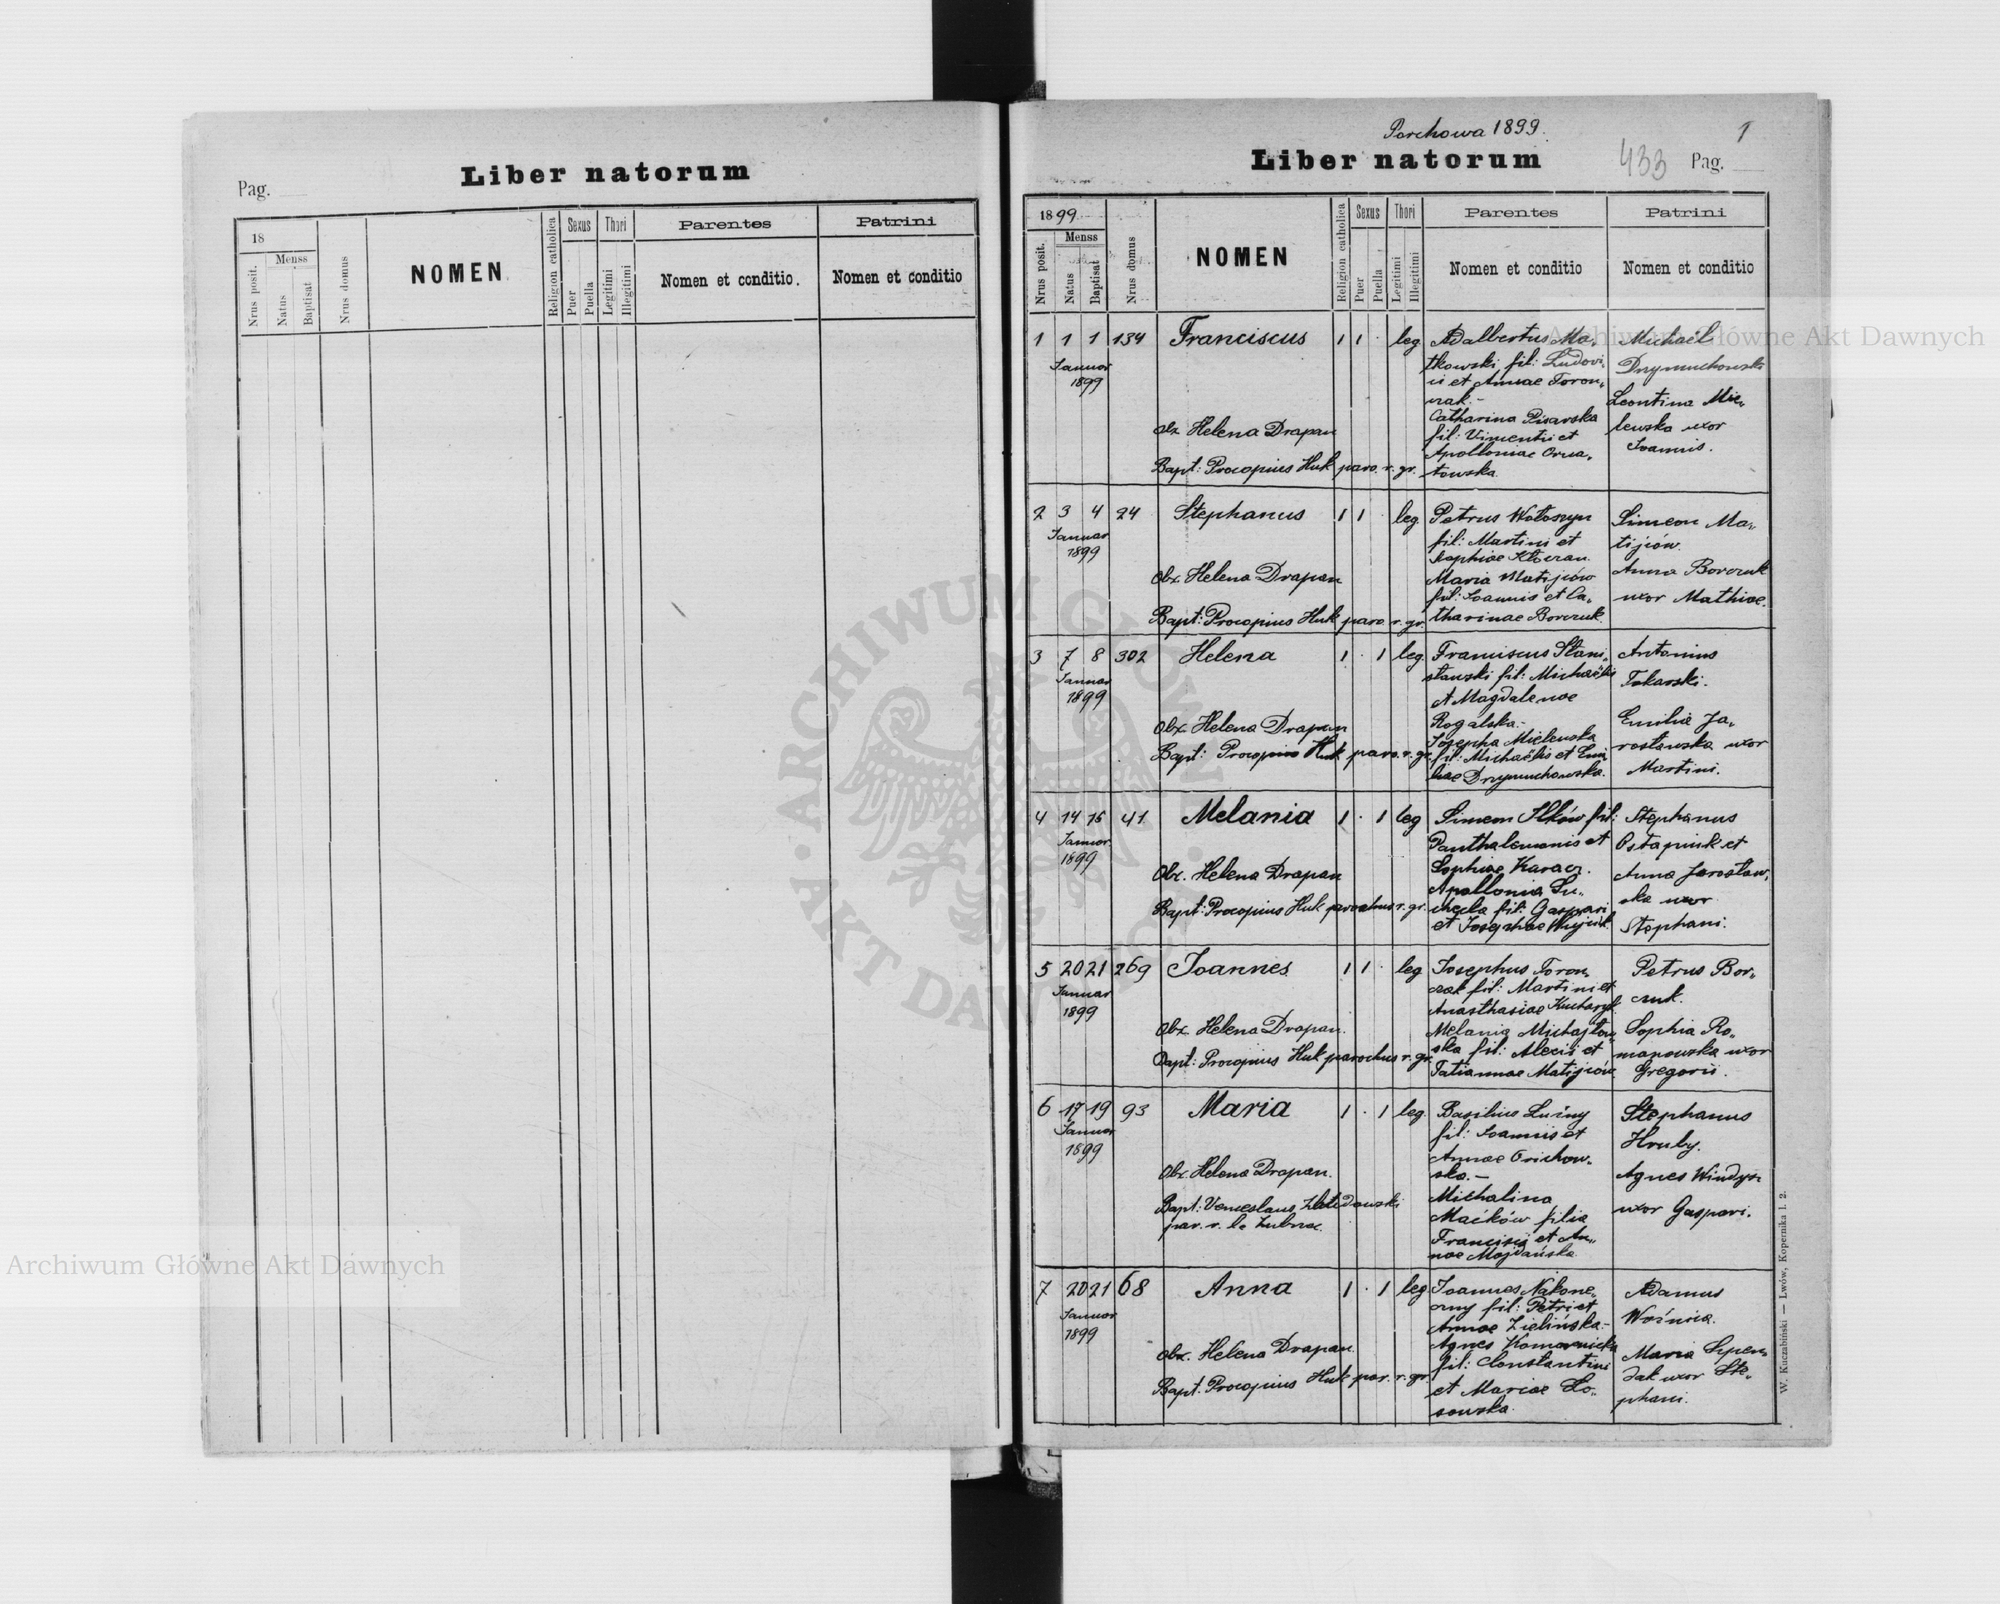 Liber natorum
Pag.
18
Menss
Nrus posit.
Natus
Baptisat
Nrus domus
NOMEN
Religion catholica
Sexus
Puer
Puella
Thori
Legitimi
Illegitimi
Parentes
Nomen et conditio.
Patrini
Nomen et conditio
Porchowa 1899.
1
Liber natorum
433 Pag.
1899
Menss
Nrus posit.
Natus
Baptisat
Nrus domus
NOMEN
Religion catholica
Sexus
Puer
Puella
Thori
Legitimi
Illegitimi
Parentes
Nomen et conditio
Patrini
Nomen et conditio
1 1 1 134 Franciscus 1 1 · leg
Januar
1899
Obx Helena Drapan
Bapt: Procopius Huk paro. r. gr.
Adalbertus Ma-
tkowski fil: Ludovi-
ci et Annae Toron-
czak.-
Catharina Pisarska
fil: Vincentii et
Apolloniae
towska
Michaël
Drymuchowski
Leontina Mie-
lewska uxor
Joannis.
2 3 4 24 Stephanus 1 1 leg.
Januar
1899
Obx. Helena Drapan
Bapt: Procopius Huk paro. r. gr.
Petrus Wołoszyn
fil: Martini et
Sophiae
Maria Matijców
fil: Joannis et Ca-
tharinae Borczuk
Simeon Ma-
tijców.
Anna Borczuk
uxor Mathiae.
3 7 8 302 Helena 1 · 1 leg.
Januar
1899
Obx. Helena Drapan
Bapt: Procopius Huk paro. r. gr.
Franciscus Stani-
sławski fil: Michaëlis
et Magdalenae
Rogalska.-
Josepha Mielewska
fil: Michaëlis et Emi-
liae Drymuchowska.
Antonius
Tokarski.
Emilia Ja-
rosławska uxor
Martini.
4 14 15 41 Melania 1 · 1 leg
Januar.
1899
Obx. Helena Drapan
Bapt: Procopius Huk parochus r. gr.
Simeon Ilków fil:
Panthalemonis et
Sophiae Karacz.
Apollonia Su-
checka fil: Gaspari
et Josephae
Stephanus
Ostapiuk et
Anna Jarosław-
ska uxor
Stephani.
5 20 21 269 Joannes 1 1 · leg
Januar
1899
Obx. Helena Drapan.
Bapt: Procopius Huk parochus r. gr.
Josephus Toron-
czak fil: Martini et
Anasthasiae
Melania Michajłow-
ska fil: Alecii et
Tatiannae Matijców
Petrus Bor-
czuk.
Sophia Ro-
manowska uxor
Gregorii.
6 17 19 93 Maria 1 · 1 leg.
Januar
1899
Obx. Helena Drapan.
Bapt: Venceslaus
par. r. l.
Basilius
fil: Joannis et
Annae Orichow-
ska.-
Michalina
Maćków filia
Francisci et An-
nae Majdańska
Stephanus
Hruby.
Agnes Windyk
uxor Gaspari.
7 20 21 68 Anna 1 · 1 leg
Januar
1899
Obx. Helena Drapan.
Bapt. Procopius Huk par. r. gr.
Joannes Nakone-
czny fil: Petri et
Annae Zielińska.-
Agnes Komarnicka
fil: Constantini
et Mariae Lo-
sowska.
Adamus
Woźnica.
Maria Sepen-
dak uxor Ste-
phani.
W. Kuczabiński — Lwów, Kopernika l. 2.
Archiwum Główne Akt Dawnych
ARCHIWUM GŁÓWNE · AKT DAWNYCH ·
Archiwum Główne Akt Dawnych